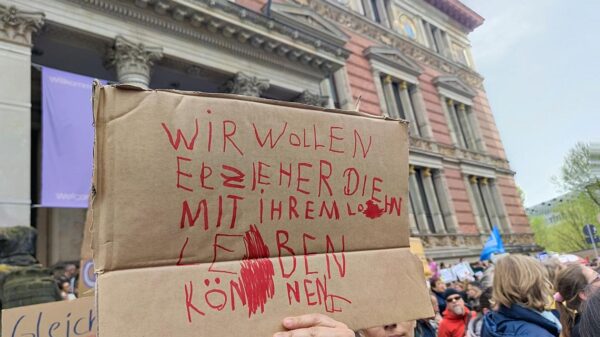 Willkomm
WiR WOLLEN
ERZiEHER DiE
MiT iHREM LOHN
LEBEN
KÖNNEN
Gleich